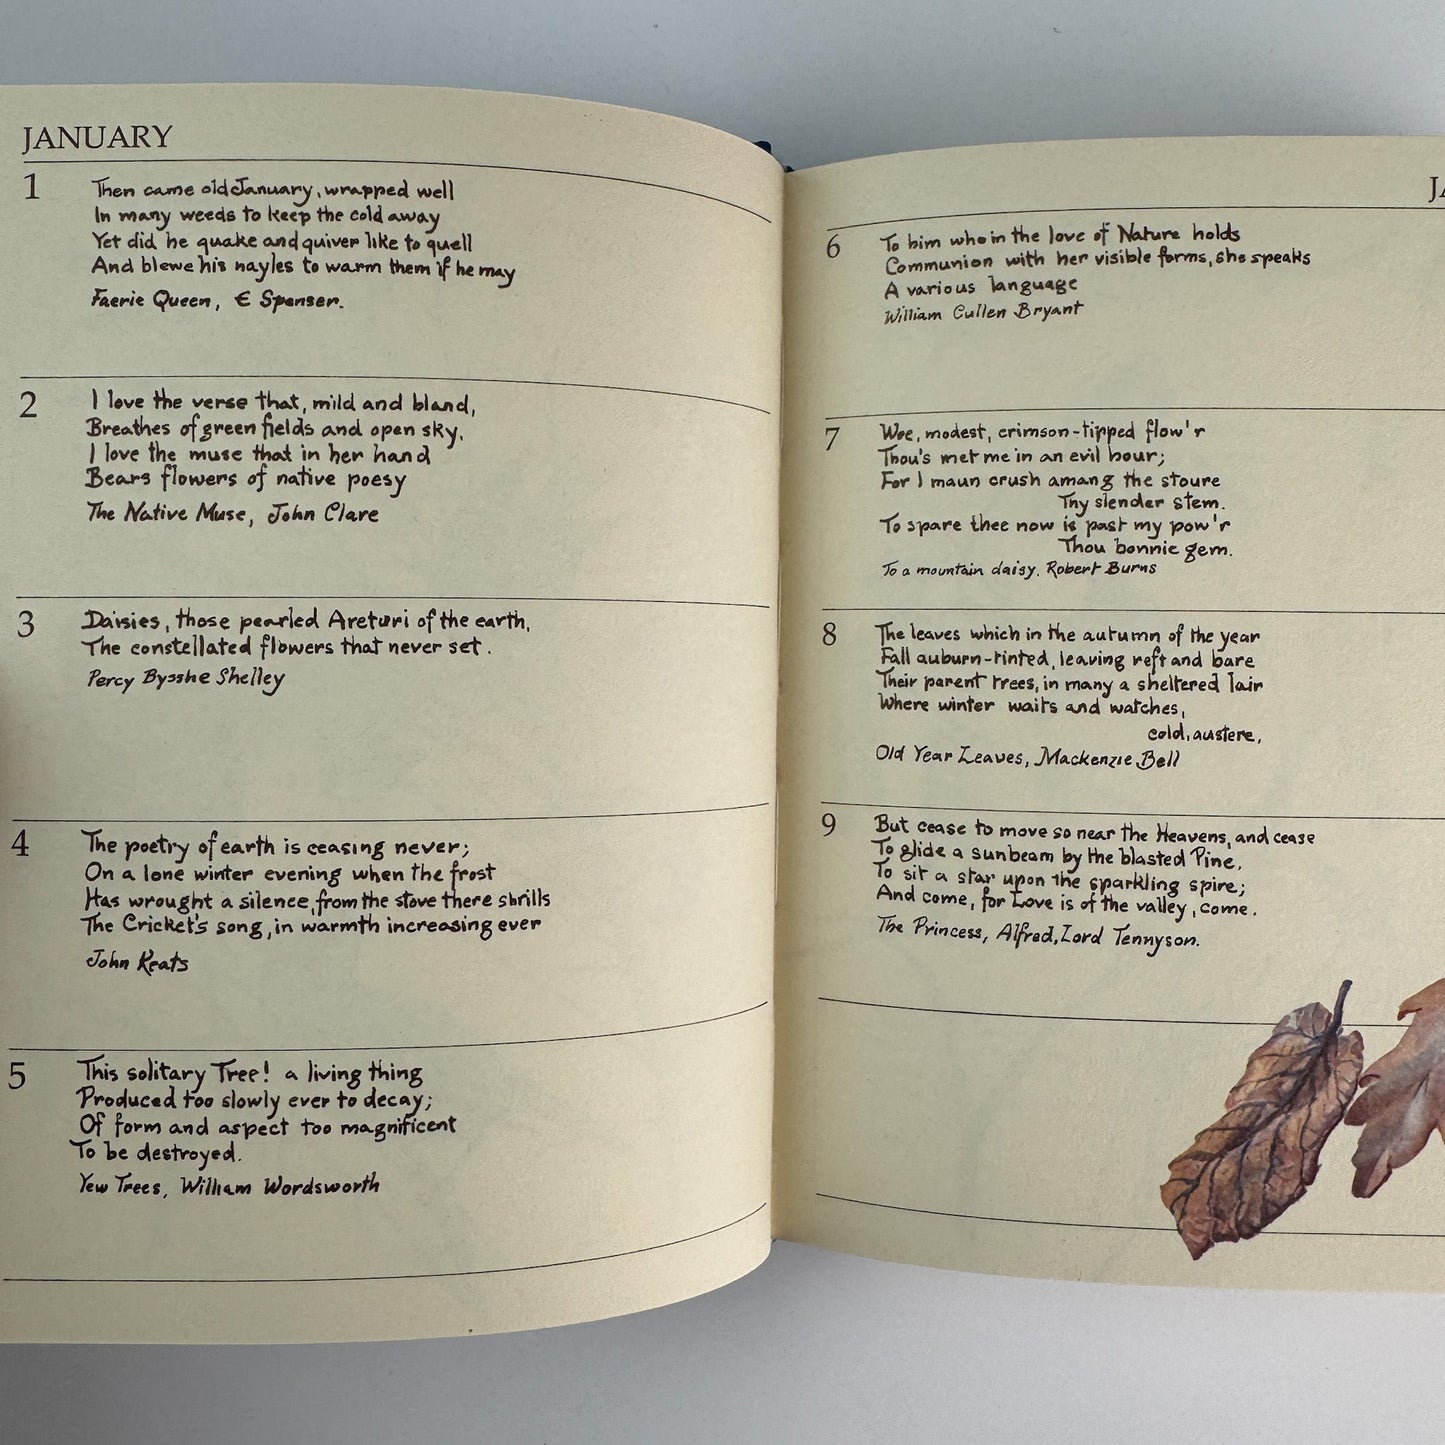 JANUARY
1
Then came old January, wrapped well
In many weeds to keep the cold away
Yet did he quake and quiver like to quell
And blewe his nayles to warm them if he may
Faerie Queen, E Spenser.
2
I love the verse that, mild and bland,
Breathes of green fields and open sky,
I love the muse that in her hand
Bears flowers of native poesy
The Native Muse, John Clare
3
Daisies, those pearled Areturi of the earth,
The constellated flowers that never set.
Percy Bysshe Shelley
4
The poetry of earth is ceasing never;
On a lone winter evening when the frost
Has wrought a silence, from the stove there shrills
The Cricket's song, in warmth increasing ever
John Keats
5
This solitary Tree! a living thing
Produced too slowly ever to decay;
Of form and aspect too magnificent
To be destroyed.
Yew Trees, William Wordsworth
JA
6
To him who in the love of Nature holds
Communion with her visible forms, she speaks
A various language
William Cullen Bryant
7
Wee, modest, crimson-tipped flow'r
Thou's met me in an evil hour;
For I maun crush amang the stoure
Thy slender stem.
To spare thee now is past my pow'r
Thou bonnie gem.
To a mountain daisy. Robert Burns
8
The leaves which in the autumn of the year
Fall auburn-tinted, leaving reft and bare
Their parent trees, in many a sheltered lair
Where winter waits and watches,
cold, austere,
Old Year Leaves, Mackenzie Bell
9
But cease to move so near the Heavens, and cease
To glide a sunbeam by the blasted Pine,
To sit a star upon the sparkling spire;
And come, for Love is of the valley, come.
The Princess, Alfred, Lord Tennyson.